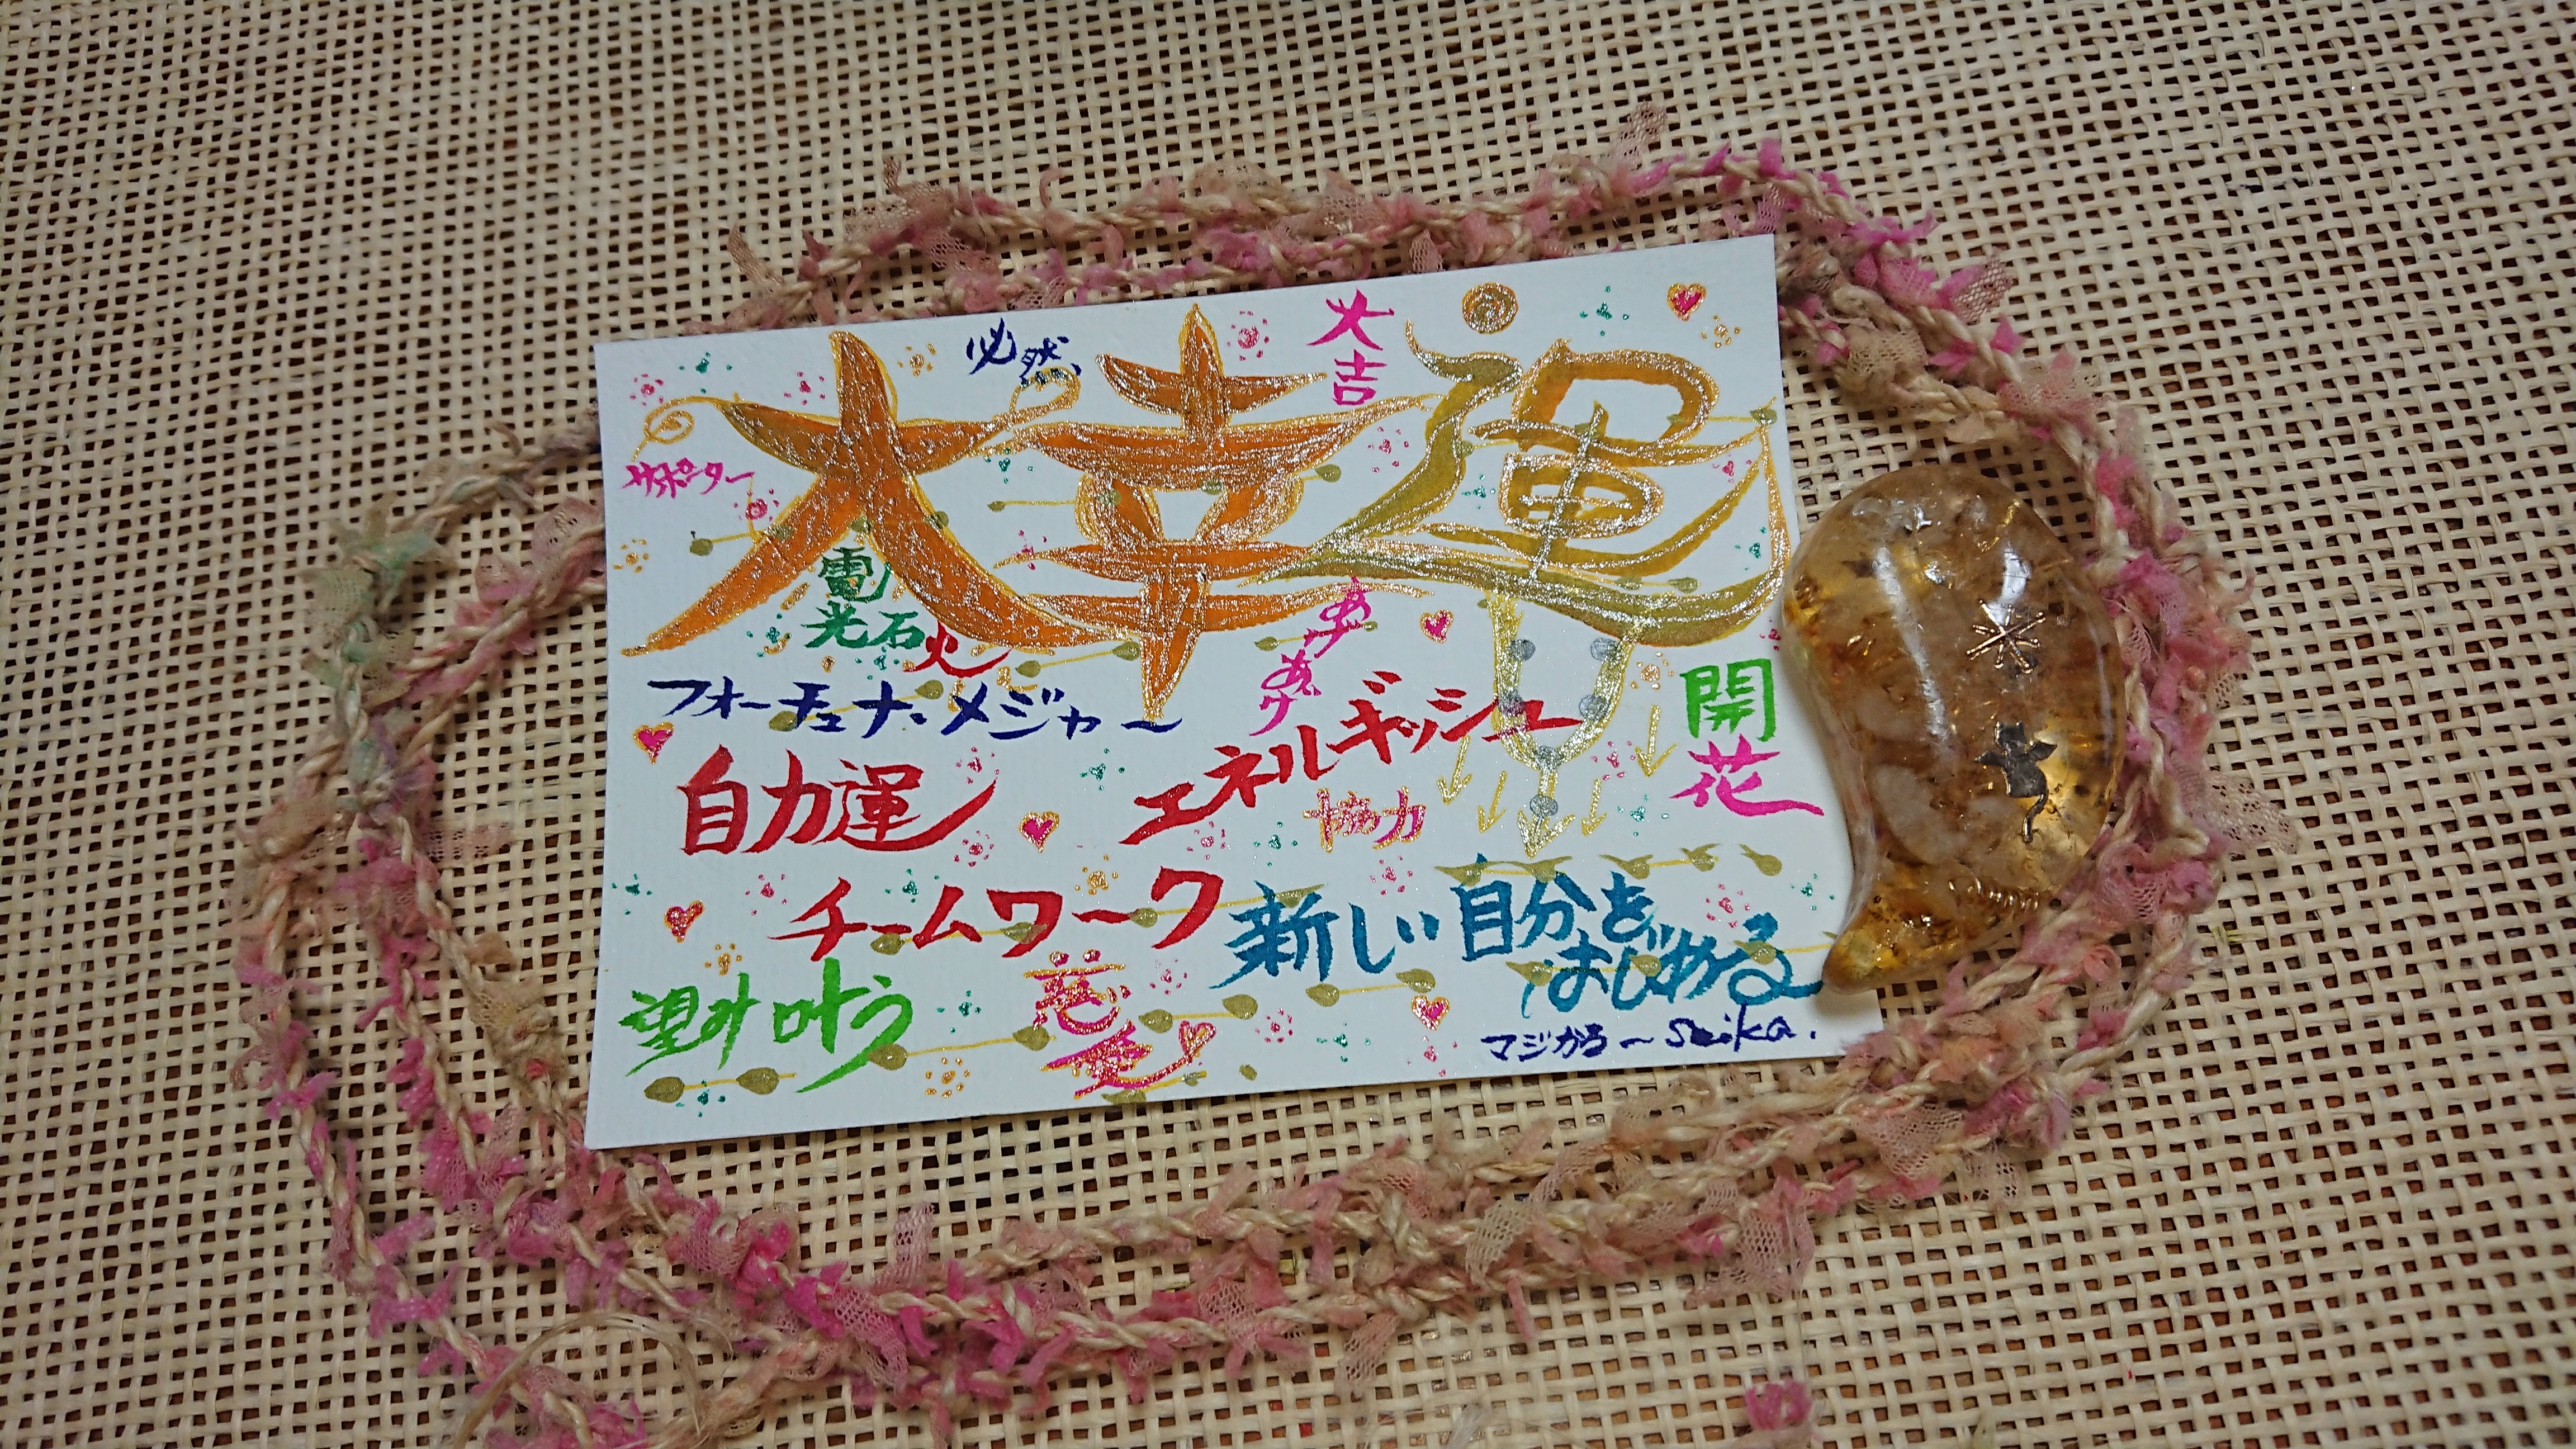 必然
大吉
大幸運
サポーター
電
光石火
アゲ
アゲ
フォーチュナ・メジャー
エネルギッシュ
開
花
自力運
協力
チームワーク
新しい自分を
はじめる
望み叶う
恋
愛
マジかるーseika.